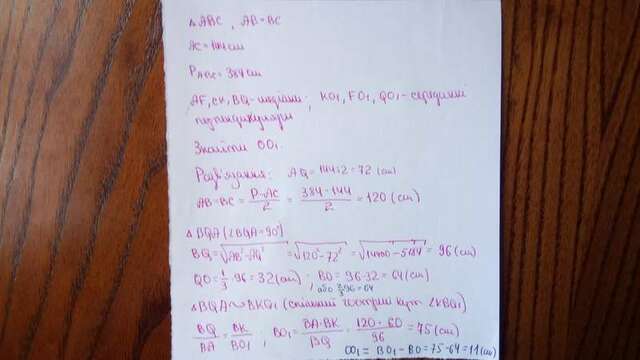 △ABC, AB=BC
AC=144см
P△ABC=384см
AF, CK, BQ-медіани; KO₁, FO₁, QO₁-серединні перпендикуляри
Знайти OO₁
Розв'язання: AQ=144:2=72 (см)
AB=BC=(P-AC)/2=(384-144)/2=120(см)
△BQA (∠BQA=90°)
BQ=√(AB²-AQ²)=√(120²-72²)=√(14400-5184)=96(см)
QO=1/3·96=32(см); BO=96-32=64(см)
або 2/3·96=64
△BQA∼△BKO₁ (спільний гострий кут ∠KBO₁)
BQ/BA=BK/BO₁; BO₁=BA·BK/BQ=120·60/96=75(см)
OO₁=BO₁-BO=75-64=11(см)